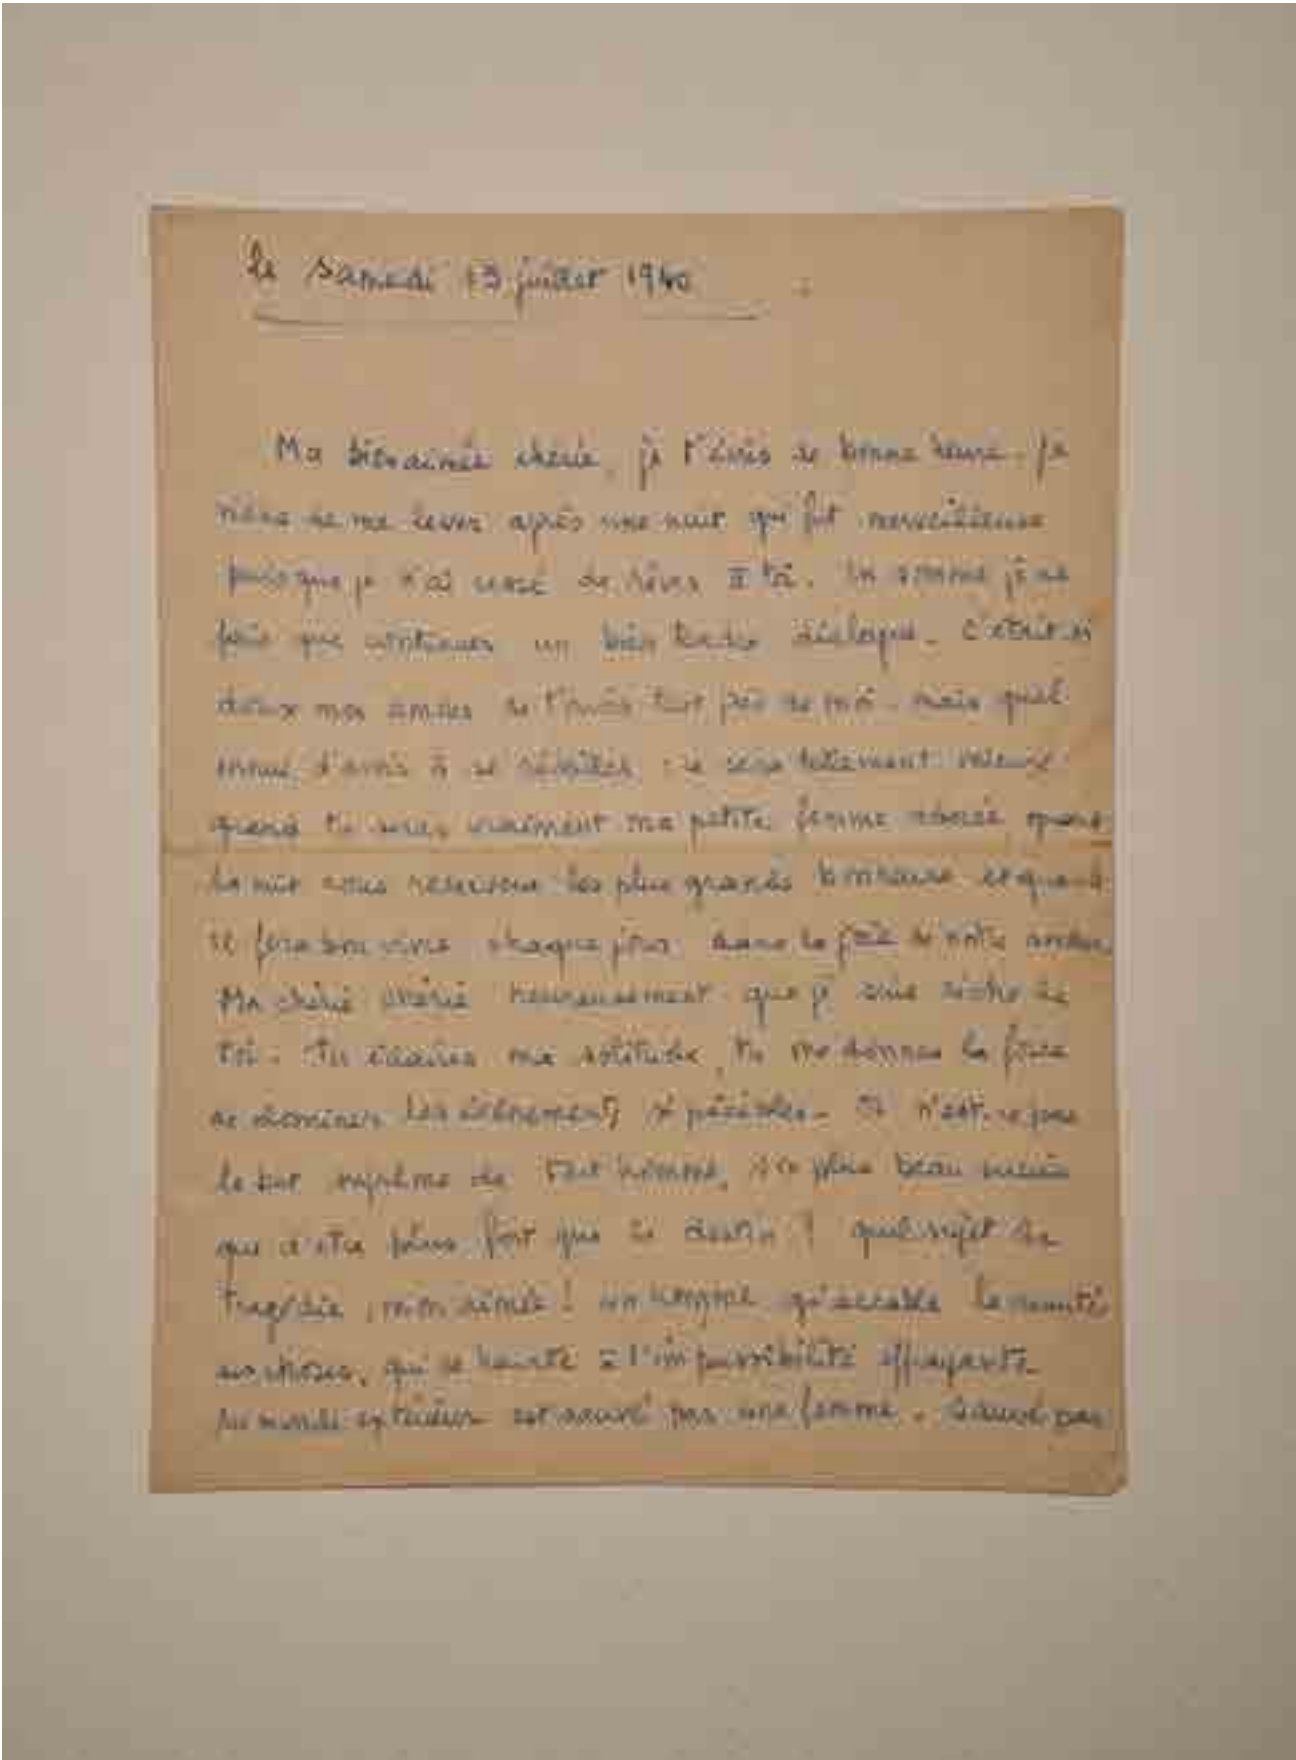 le samedi 13 juillet 1940
Ma bien aimée chérie, je t'écris de bonne heure. Je
viens de me lever après une nuit qui fut merveilleuse
puisque je n'ai cessé de rêver à toi. En somme je ne
fais que continuer un bien tendre dialogue. C'était si
doux mon amour de t'avoir tout près de moi. mais quel
ennui d'avoir à se réveiller. ce sera tellement mieux
quand tu seras vraiment ma petite femme adorée, quand
la nuit nous réservera les plus grands bonheurs et quand
il fera bon vivre chaque jour dans la joie de notre amour.
Ma chérie chérie heureusement que je suis riche de
toi. Tu éclaires ma solitude, tu me donnes la force
de dominer les événements si pénibles. Et n'est-ce pas
le but suprême de tout homme, le plus beau succès
que d'être plus fort que le destin ! quel sujet de
tragédie, mon aimée ! un homme qu'accable la vanité
des choses, qui se heurte à l'impossibilité effrayante
du monde extérieur est sauvé par une femme. Sauvé par